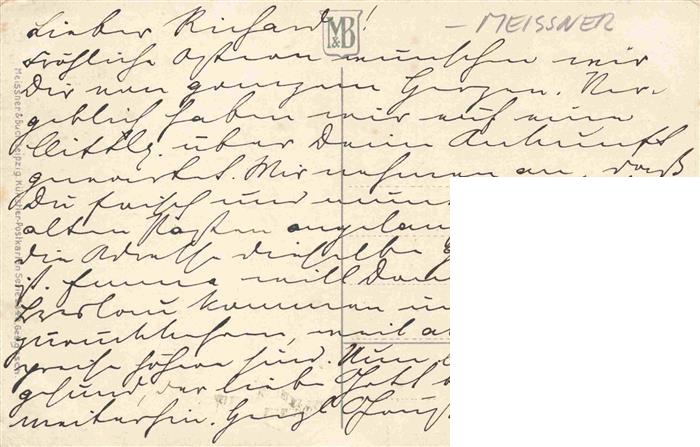 Lieber Richard!
M&B
– MEISSNER
Fröhliche Ostern wünschen wir
Dir von ganzem Herzen. Ver-
geblich haben wir auf eine
Mittlg. über Deine Ankunft
gewartet. Wir nehmen an, daß
Du frisch und mun
alten Posten angelan
die Adresse dieselbe
ist. Emma will
Breslau kommen u
zurückkehren, weil
preise höher sind. Nun
gesund, der liebe Gott
weiterhin. Herzl.
Meissner & Buch, Leipzig Künstler-Postkarten Serie